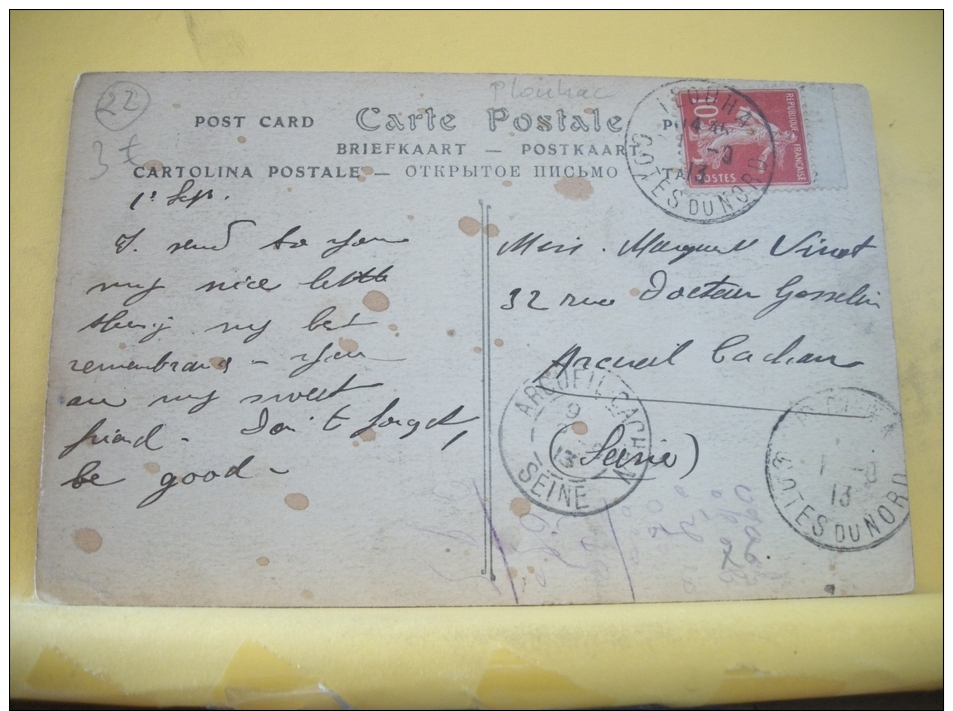 22
Plouhac
POST CARD Carte Postale
BRIEFKAART — POSTKAART
3 €
CARTOLINA POSTALE — ОТКРЫТОЕ ПИСЬМО
10
REPUBLIQUE FRANÇAISE
POSTES
COTES DU NORD
13
1r Sep.
I send to you
my nice little
thing my best
remembrans – you
are my sweet
friend – Don't forget,
be good –
Miss. Marguerite Vinot
32 rue Docteur Gosselin
Arcueil Cachan
(Seine)
ARCUEIL-CACHAN
9
13
SEINE
13
COTES DU NORD